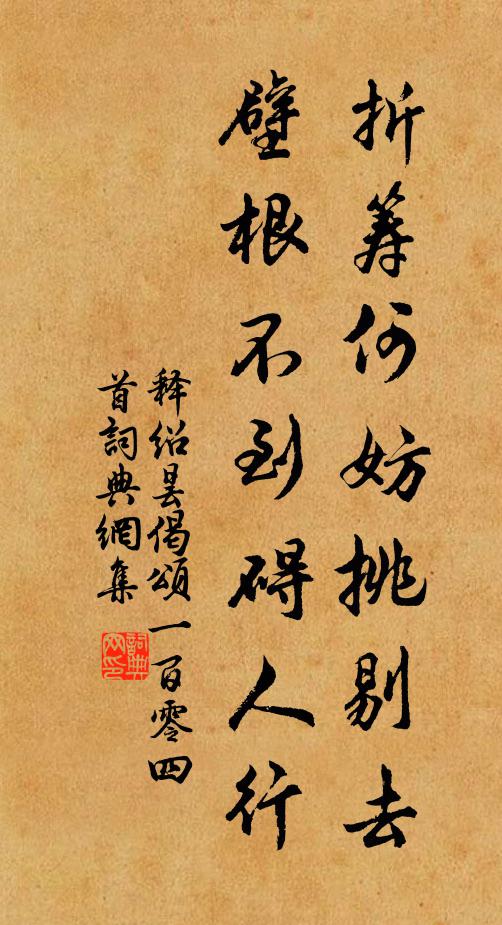 折筹何妨挑剔去
壁根不到碍人行
释绍昙偈颂一百零四
首詞典網集
詞典网印